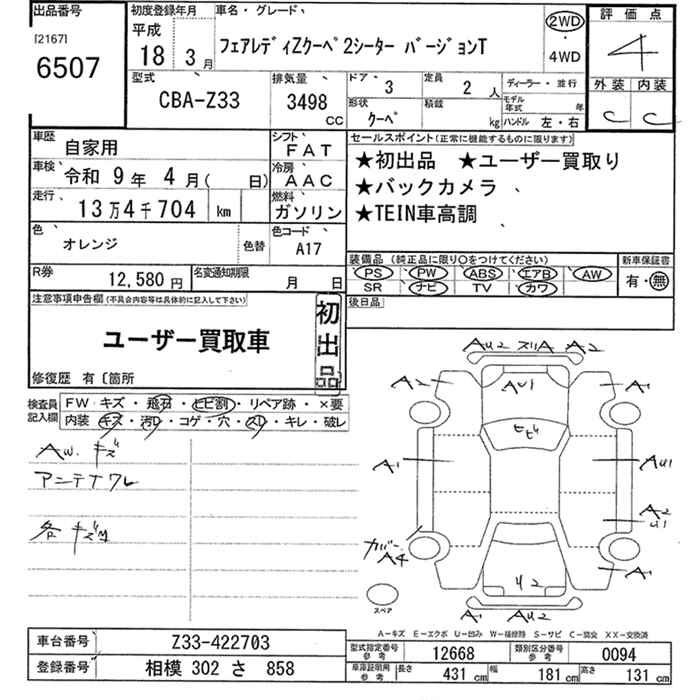 出品番号 初度登録年月 車名・グレード 評価点
[2167] 平成 2WD
6507 18 3月 フェアレディZクーペ 2シーター バージョンT ・ 4
4WD
型式 排気量 ドア 3 定員 2 人 ディーラー・並行 外装 内装
CBA-Z33 3498 CC 形状 クーペ 積載 kg モデル年式 年 C C
ハンドル 左・右
車歴 自家用 シフト FAT セールスポイント(正常に機能するものに限ります)
車検 令和 9年 4月( 日) 冷房 AAC ★初出品 ★ユーザー買取り
走行 13万4千704 km 燃料 ガソリン ★バックカメラ
★TEIN車高調
色 オレンジ 色替 色コード A17
装備品 (純正品に限り○をつけてください) 新車保証書
R券 12,580円 名変通知期限 月 日 PS PW ABS エアB AW 有・無
SR ナビ TV カワ
注意事項申告欄(不具合内容等は具体的に記入して下さい) 初出品 後日品
ユーザー買取車
修復歴 有〔箇所
検査員記入欄 FW キズ・飛石・ヒビ割・リペア跡・×要
内装 キズ・汚れ・コゲ・穴・スレ・キレ・破レ
AW. キズ
アンテナワレ
各 キズ
AU2 スリA A2
A2 AU1 A1
ヒビ
A1 AU1
A2
U1
カバー
A4 A1
U2
スペア A1 AU2
A-キズ E-エクボ U-凹み W-補修跡 S-サビ C-腐食 XX-交換済
車台番号 Z33-422703 型式指定番号 参考 12668 類別区分番号 参考 0094
登録番号 相模 302 さ 858 車庫証明用 参考 長さ 431 cm 幅 181 cm 高さ 131 cm